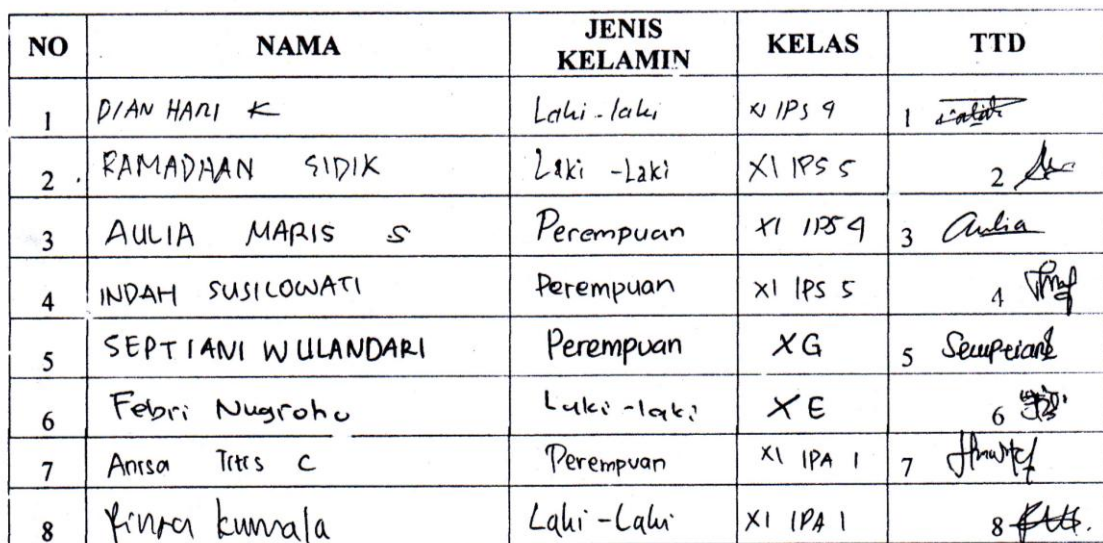 NO NAMA JENIS KELAMIN KELAS TTD
1 DIAN HARI K Laki-laki XI IPS 4 1
2 RAMADHAN SIDIK Laki-Laki XI IPS 5 2
3 AULIA MARIS S Perempuan XI IPS 4 3 Aulia
4 INDAH SUSILOWATI Perempuan XI IPS 5 4
5 SEPTIANI WULANDARI Perempuan XG 5
6 Febri Nugroho Laki-laki XE 6
7 Anisa Titis C Perempuan XI IPA 1 7
8 kumala Laki-Laki XI IPA 1 8